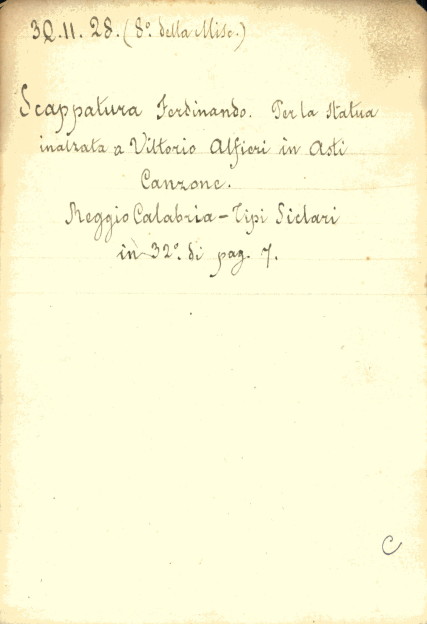 3Q.11.28. (8º della Misc.)
Scappatura Ferdinando. Per la Statua
inalzata a Vittorio Alfieri in Asti
Canzone.
Reggio Calabria – Tipi Siclari
in 32º. di pag. 7.
C